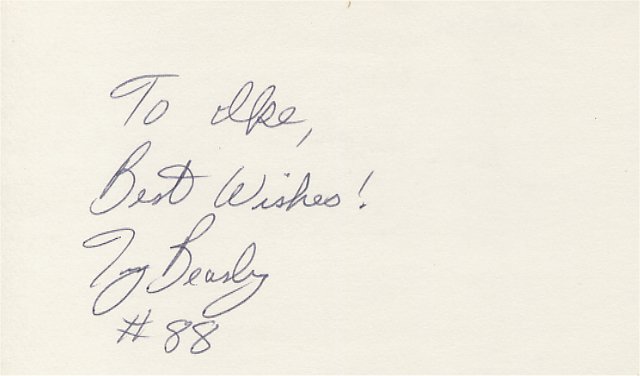 To Ike,
Best Wishes!
Terry Beasley
#88